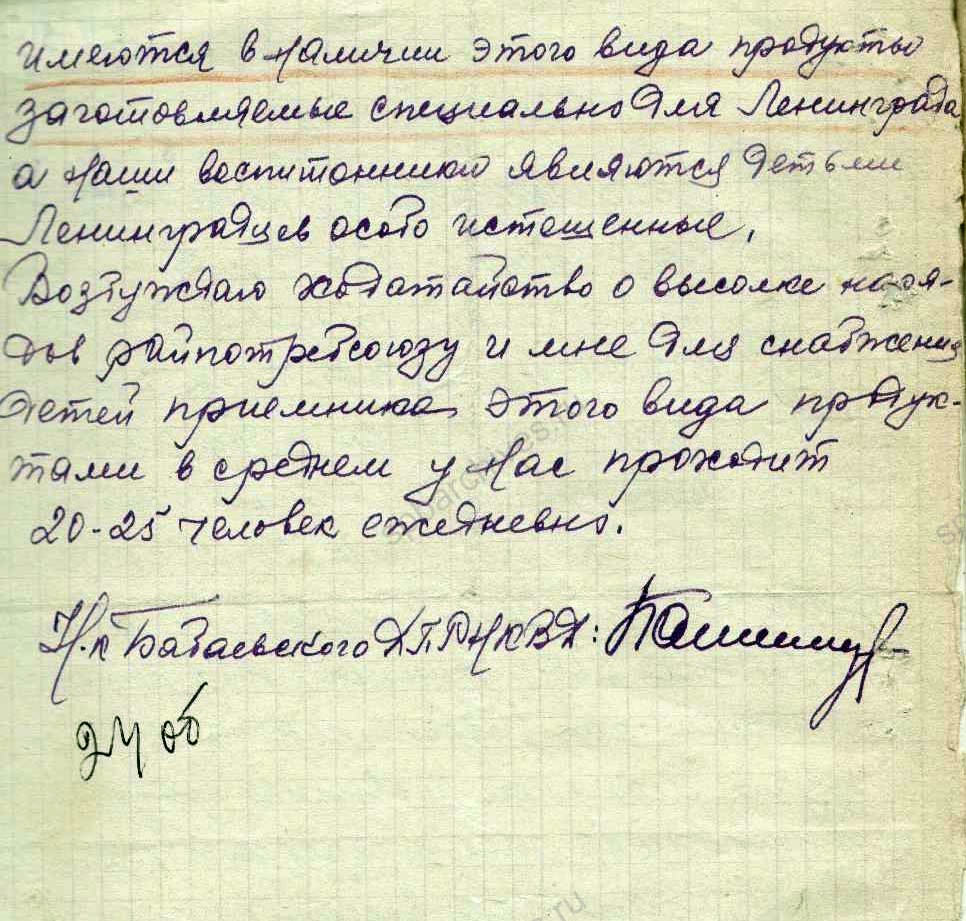 имеются в наличии этого вида продукты
заготовляемые специально для Ленинграда
а наши воспитанники являются детьми
Ленинградцев особо истощенные,
Возбуждаю ходатайство о высылке наря-
дов райпотребсоюзу и мне для снабжения
детей приемника этого вида продук-
тами в среднем у нас проходит
20-25 человек ежедневно.
Н.к Бабаевского ДПРНКВД:
24 об